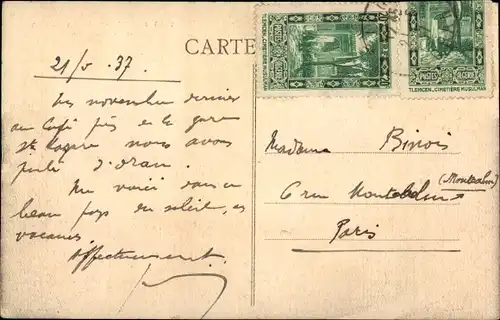 CARTE
21/5.37
En novembre dernier
au Café près de la gare
St Lazare nous avons
parlé d'Oran.
Me voici dans ce
beau pays du soleil, en
vacances.
Affectueusement.
TLEMCEN, CIMETIÈRE MUSULMAN
POSTES ALGERIE
TLEMCEN, CIMETIÈRE MUSULMAN
Madame Binois
6 rue Montcalm
(Montcalm)
Paris